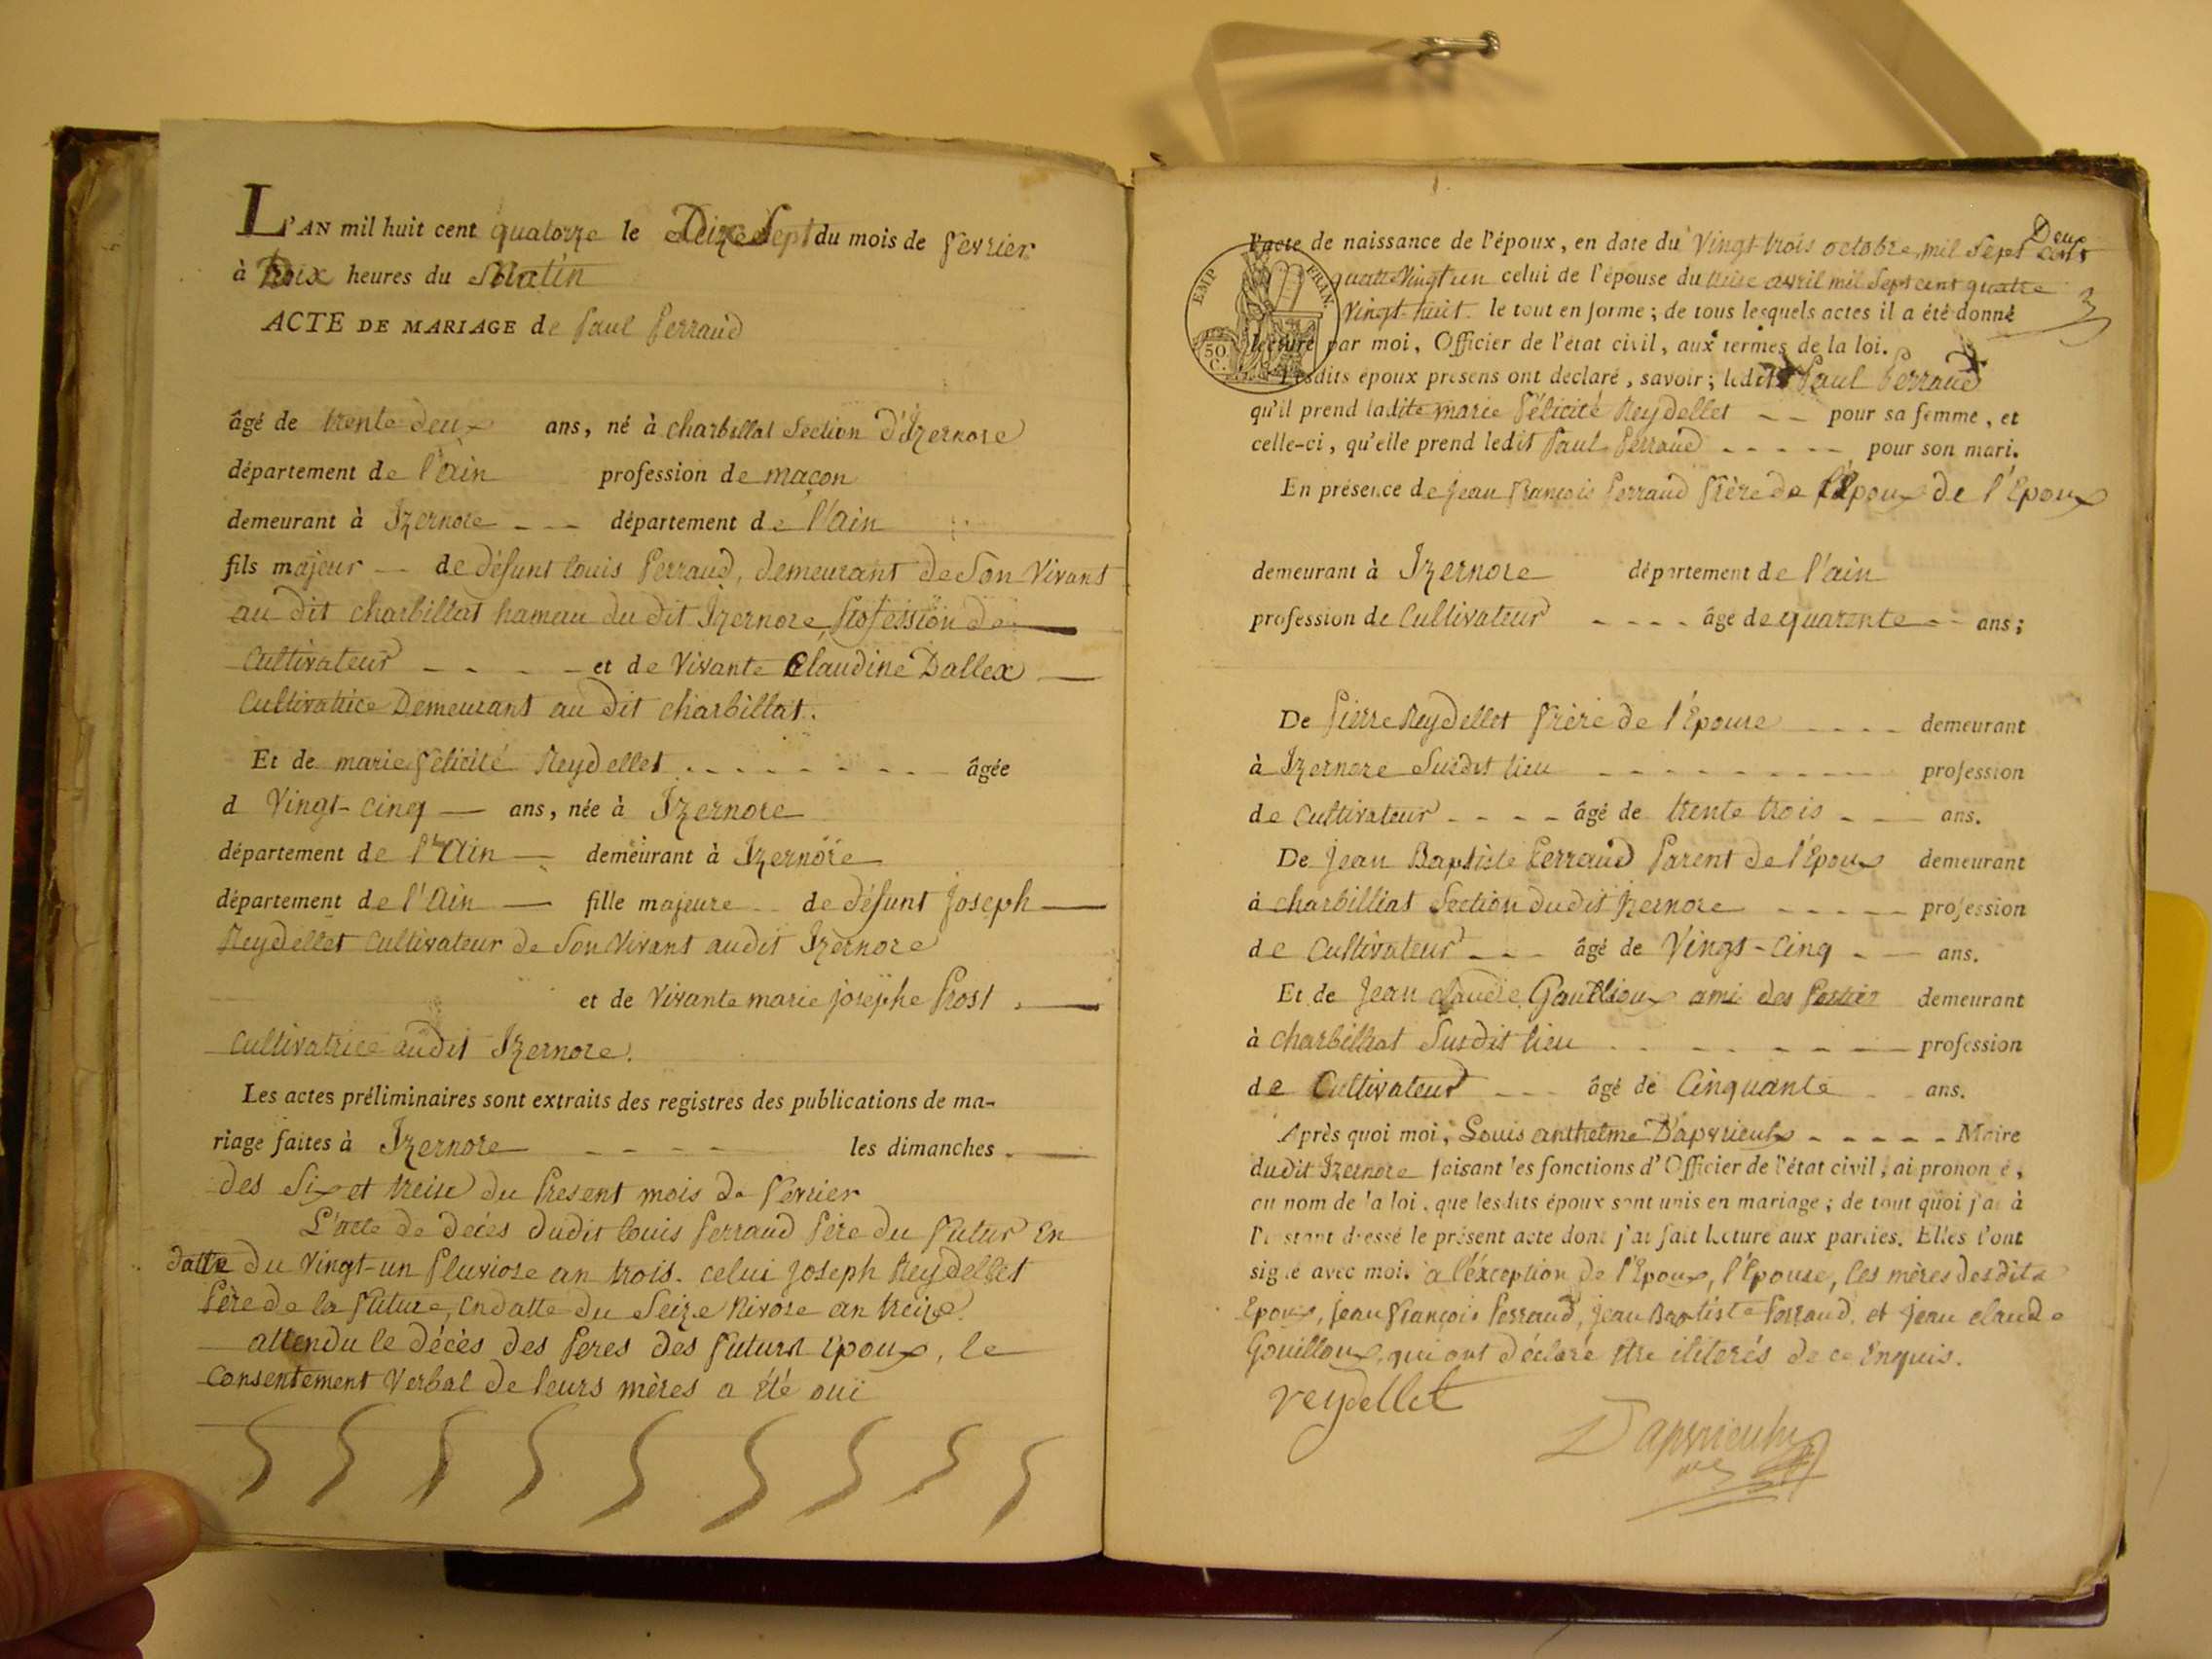 L'AN mil huit cent quatorze le Dixe Sept du mois de février
à Dix heures du Matin
ACTE DE MARIAGE de Paul Perraud
âgé de trente deux ans, né à charbillat Section d'Izernore
département de l'ain profession de maçon
demeurant à Izernore - - - département de l'Ain
fils majeur - de défunt louis Perraud, demeurant de Son Vivant
au dit charbillat hameau du dit Izernore, Profession de
Cultivateur - - - - et de Vivante Claudine Dallex
Cultivatrice Demeurant au dit charbillat.
Et de marie félicité Reydellet - - - - - - - - âgée
d Vingt-cinq - ans, née à Izernore
département de l'Ain - demeurant à Izernore
département de l'Ain - fille majeure - de défunt Joseph
Reydellet Cultivateur de Son Vivant audit Izernore
et de Vivante marie josephe Prost
Cultivatrice audit Izernore.
Les actes préliminaires sont extraits des registres des publications de ma-
riage faites à Izernore - - - - les dimanches
des Six et treize du Present mois de février
L'acte de décès dudit louis Perraud Père du futur En
datte du Vingt-un Pluviose an trois. celui Joseph Reydellet
Père de la future, En datte du Seize Nivose an treize.
attendu le décès des Peres des futurs Epoux, le
Consentement Verbal de leurs mères a été ouï
l'acte de naissance de l'époux, en date du Vingt-trois octobre, mil Sept Cent
Deux
quatre Vingt un celui de l'épouse du treize avril mil Sept cent quatre
Vingt-huit. le tout en forme ; de tous lesquels actes il a été donné
lecture par moi, Officier de l'état civil, aux termes de la loi.
Lesdits époux présens ont déclaré, savoir ; ledit Paul Perraud
qu'il prend ladite marie félicité Reydellet - - pour sa femme, et
celle-ci, qu'elle prend ledit Paul Perraud - - - - - pour son mari.
En présence de Jean françois Perraud frère de l'Epoux de l'Epoux
demeurant à Izernore département de l'ain
profession de Cultivateur - - - - âgé de quarente - - ans ;
De Pierre Reydellet frère de l'Epouse - - - - demeurant
à Izernore Susdit lieu - - - - - - - - - profession
de Cultivateur - - - - âgé de trente trois - - ans.
De Jean Baptiste Perraud Parent de l'Epoux demeurant
à charbilliat Section du dit Izernore - - - - - profession
de Cultivateur - - - âgé de Vingt-Cinq - - ans.
Et de Jean claude Gouilloux ami des Parties demeurant
à charbillat Susdit lieu - - - - - - - profession
de Cultivateur - - - âgé de Cinquante - - ans.
Après quoi moi, Louis anthelme D'apvrieulx - - - - - Maire
dudit Izernore faisant les fonctions d'Officier de l'état civil, ai prononcé,
au nom de la loi, que lesdits époux sont unis en mariage ; de tout quoi j'ai à
l'instant dressé le présent acte dont j'ai fait lecture aux parties. Elles l'ont
signé avec moi. a l'éxception de l'Epoux, l'Epouse, les mères desdits
Epoux, Jean françois Perraud, Jean Baptiste Perraud, et Jean claude
Gouilloux, qui ont déclaré être iliterés de ce Enquis.
reydellet
D'apvrieulx
EMP FRAN.
50 C.